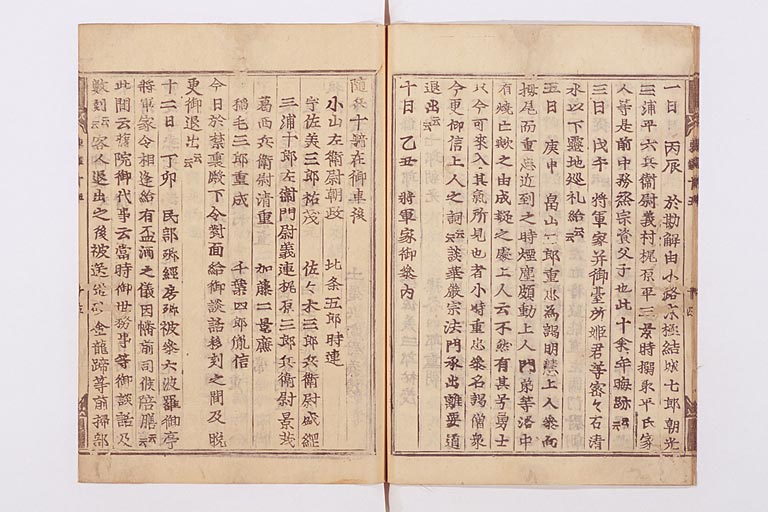 一日 丙辰 於勘解由小路京極結城七郎朝光
三浦平六兵衛尉義村梶原平三景時搦取平氏家
人等是前中務丞宗資父子也此十余年晦跡云云
三日 戊午 将軍家并御臺所姫君等密々石清
水以下靈地巡礼給云云
五日 庚申 畠山二郎重忠為謁明慧上人参向
栂尾而重忠近到之時煙塵頗動上人門弟等洛中
有焼亡歟之由成疑之處上人云不然有其号勇士
只今可来入其氣所見也者小時重忠参名謁僧衆
今更仰信上人之詞云云談華厳宗法門承出離要道
退出云云
十日 乙丑 將軍家御参内
随兵十騎在御車後
小山左衛尉朝政 北条五郎時連
宇佐美三郎祐茂 佐々木三郎兵衛尉盛綱
三浦十郎左衛門尉義連梶原三郎兵衛尉景茂
葛西兵衛尉清重 加藤二景廉
稲毛三郎重成 千葉四郎胤信
今日於禁裏殿下令對面給御談話移刻之間及晩
更御退出云云
十二日 丁卯 民部丞經房卿被参六波羅御亭
將軍家令相逢給有盃酒之儀因幡前司候陪膳云云
此間云 院御代事云當時御世務事等御談話及
數刻云云客人退出之後被送 金龍蹄等前掃部